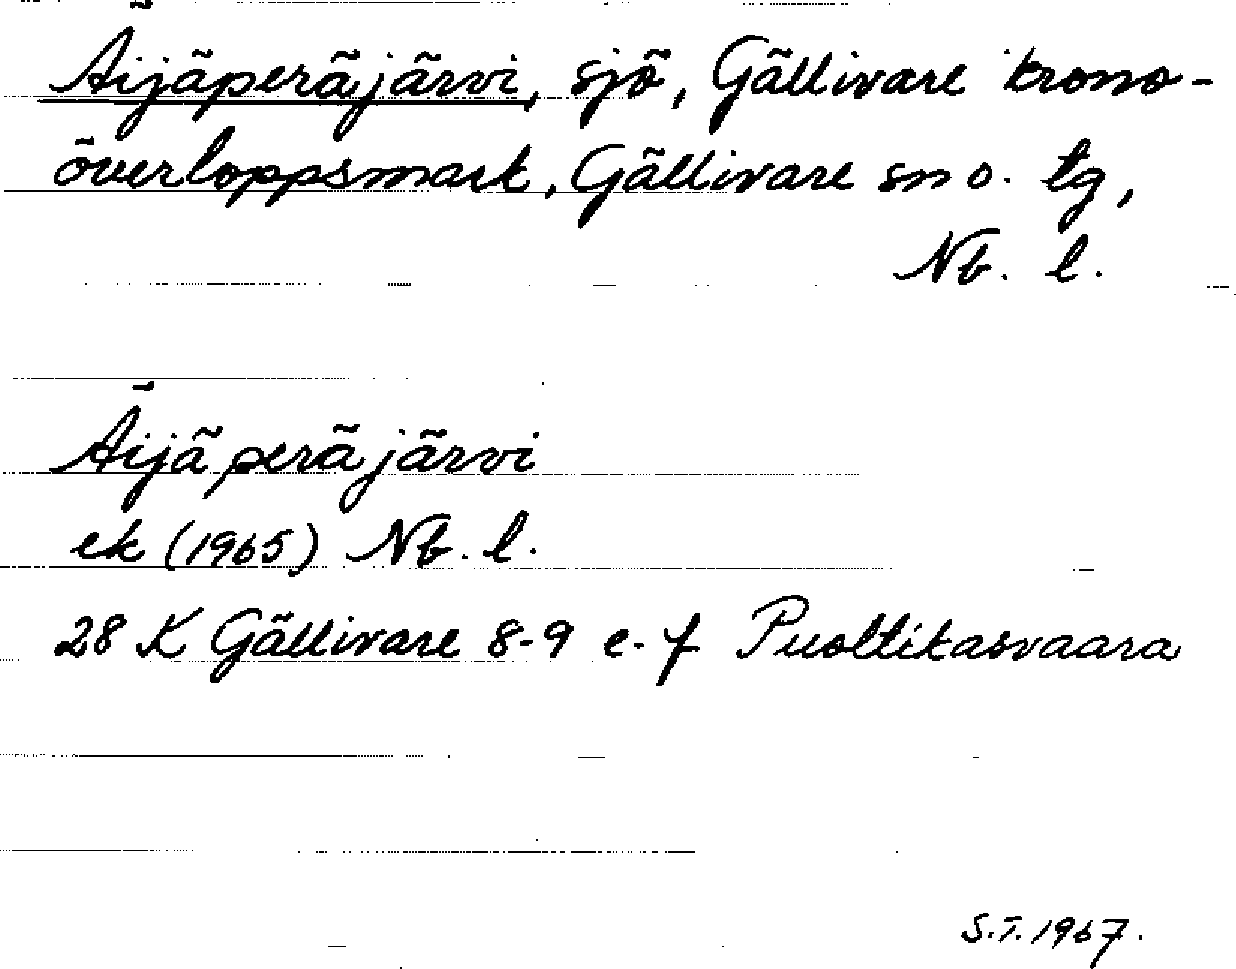 Äijäperäjärvi, sjö, Gällivare krono-
överloppsmark, Gällivare sn o. tg,
Nb. l.
Äijäperäjärvi
ek (1965) Nb. l.
28 K Gällivare 8-9 e-f Puoltikasvaara
S.T. 1967.